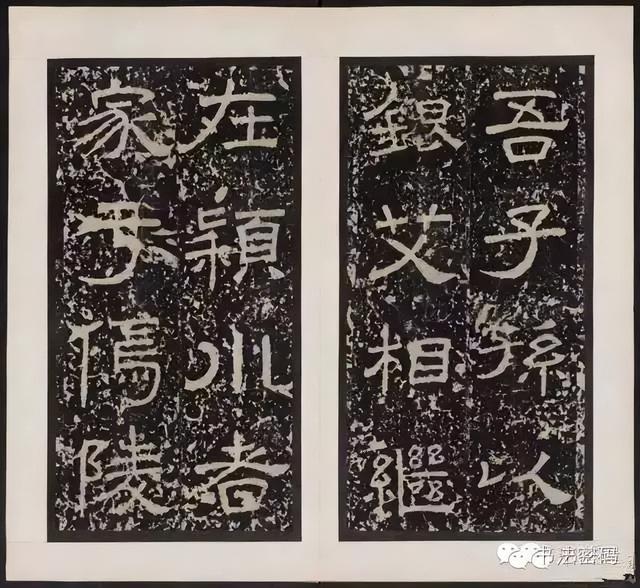 吾子孫以
銀艾相繼
在潁川者
家于傿陵
书法密码